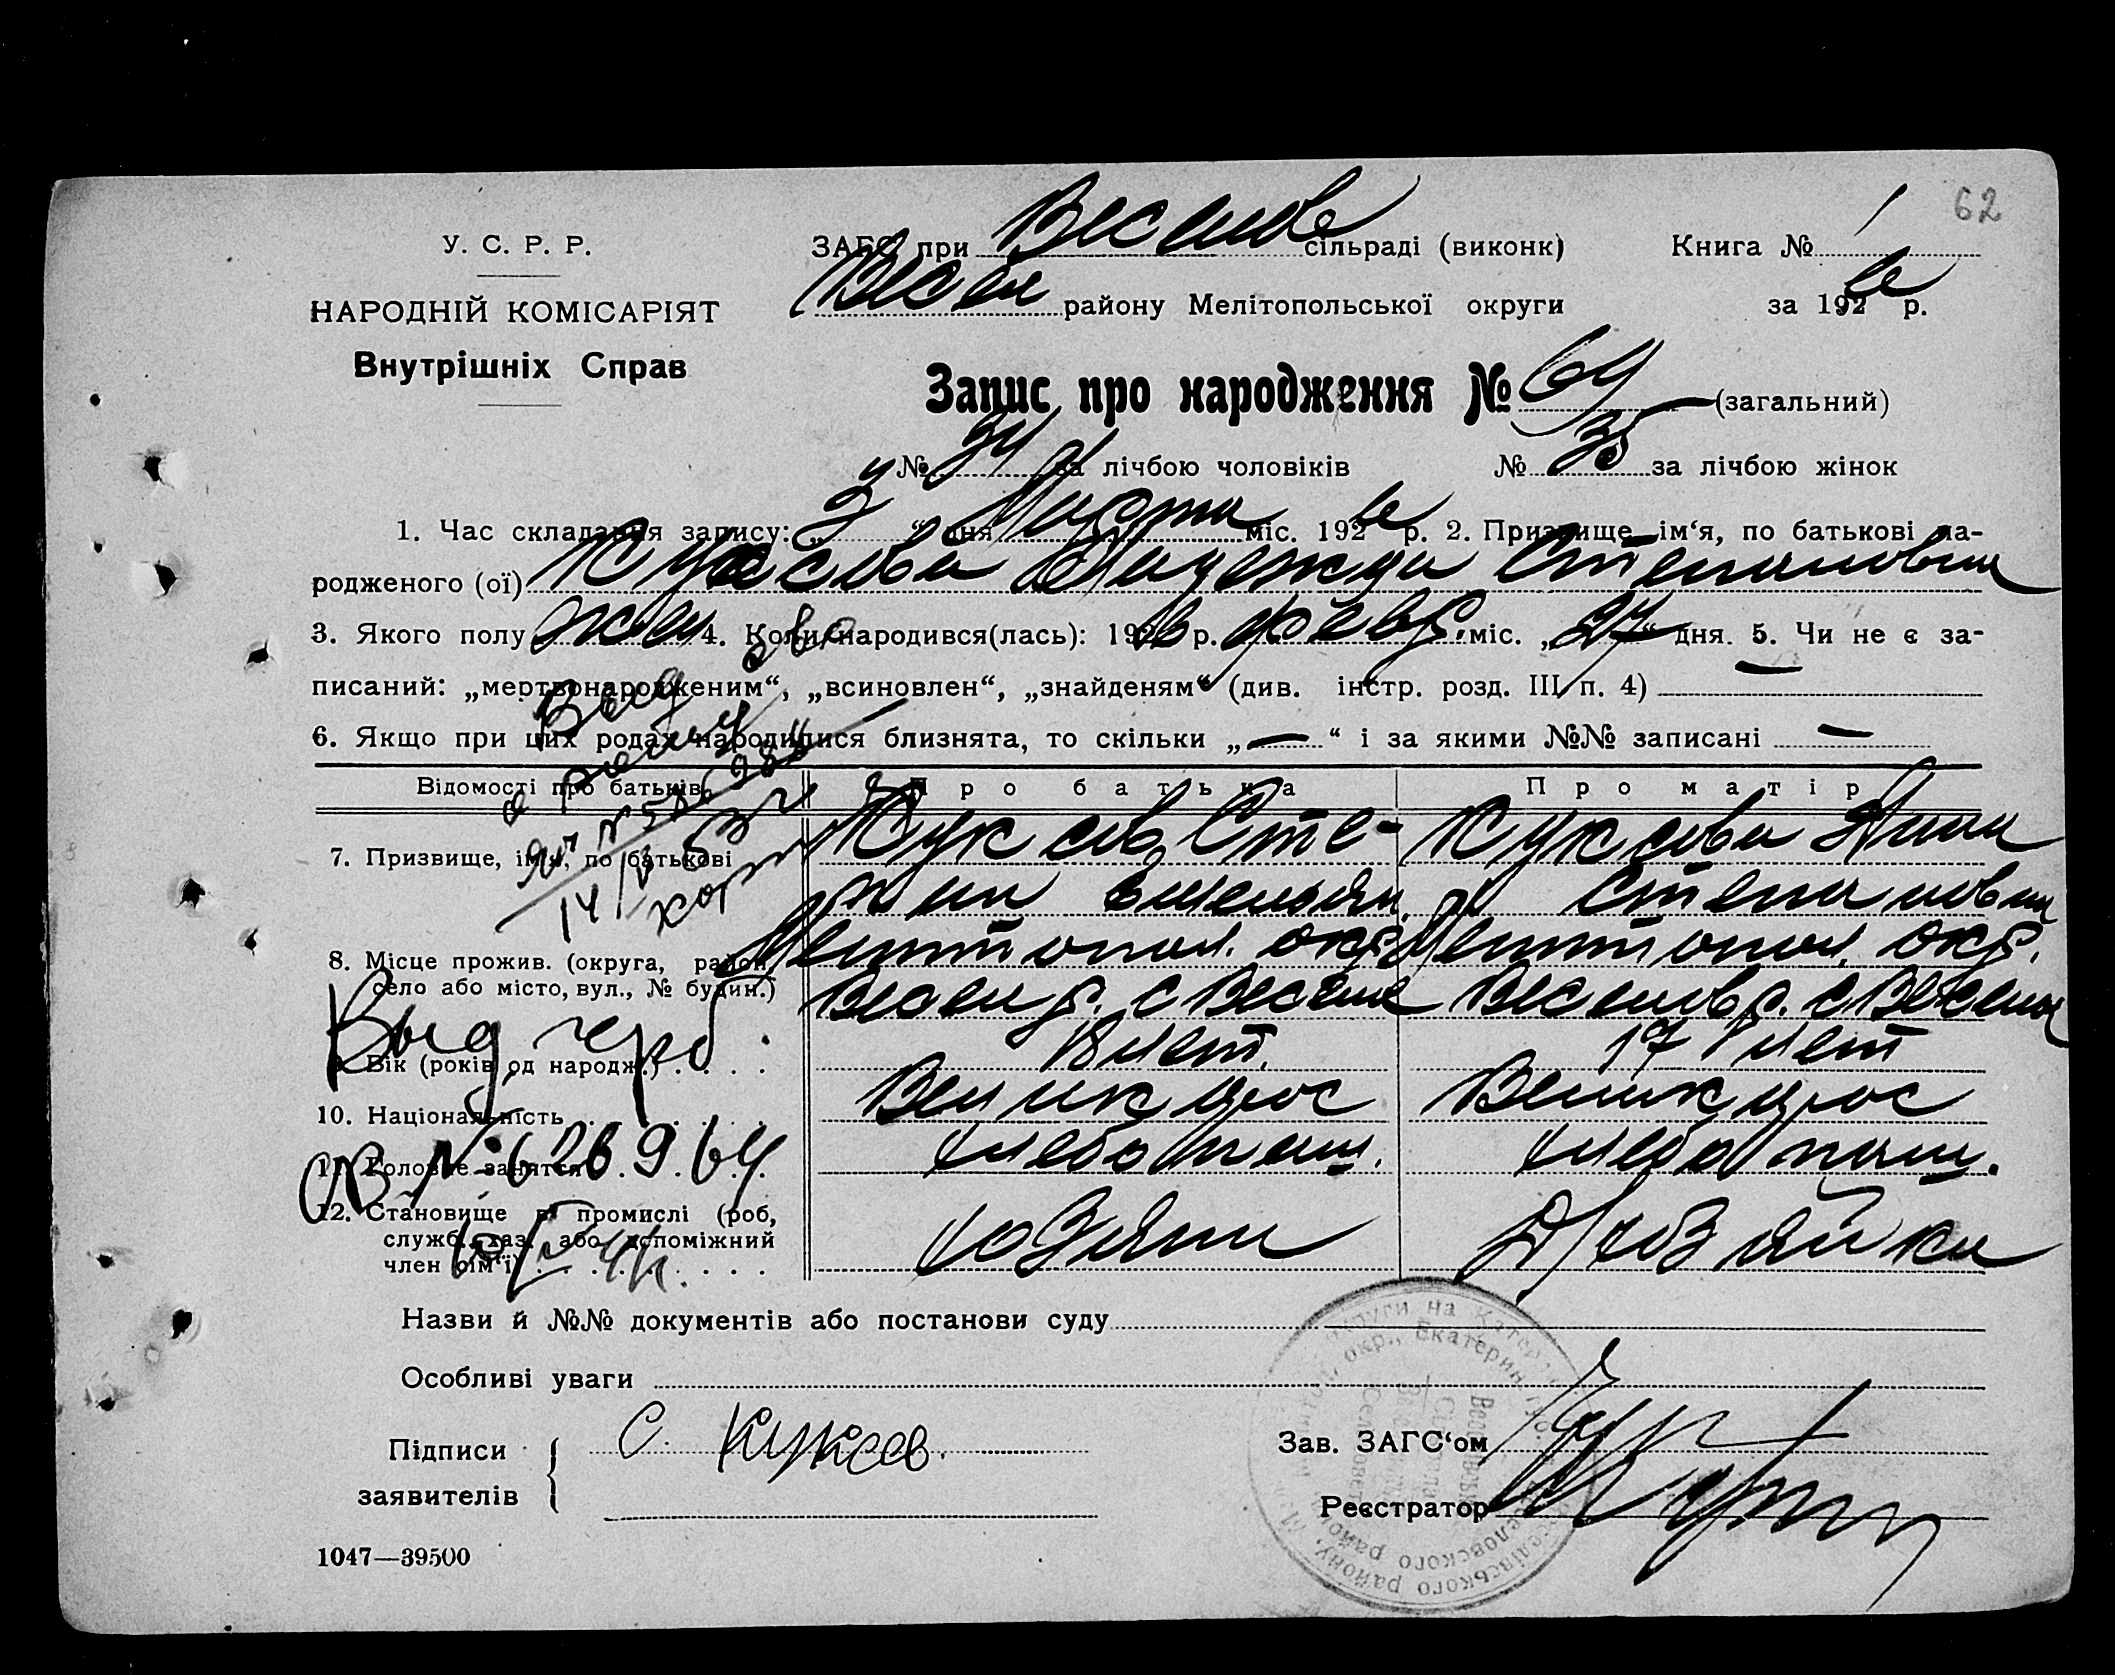 62
У. С. Р. Р.
НАРОДНІЙ КОМІСАРІЯТ
Внутрішніх Справ
ЗАГС при Веселов сільраді (виконк)
Весел району Мелітопольської округи
Книга № 1
за 1926 р.
Запис про народження № 64 (загальний)
№ за лічбою чоловіків № 35 за лічбою жінок
1. Час складання запису: „ “ дня Марта міс. 1926 р. 2. Призвище, ім‘я, по батькові на-
родженого (ої) Куксова Надежда Степановна
3. Якого полу жен 4. Коли народився(лась): 1926 р. февр. міс. „27“ дня. 5. Чи не є за-
писаний: „мертвонародженим“, „всиновлен“, „знайденям“ (див. інстр. розд. III п. 4) —
6. Якщо при цих родах народилися близнята, то скільки „—“ і за якими №№ записані —
Відомості про батьків Про батька Про матір
7. Призвище, ім‘я, по батькові
Куксов Сте-
пан Емельян.
Куксова Анна
Степановна
8. Місце прожив. (округа, район,
село або місто, вул., № будин.)
Мелитопол. окр.
Весел р. с Веселое
Мелитопол. окр.
Веселов р. с Веселое
9. Вік (років од народж.) 18 лет. 17 лет
10. Національність Великорос Великорос
11. Головне заняття хлебопаш. хлебопаш.
12. Становище в промислі (роб,
служб., хаз. або вспоміжний
член сім‘ї)
хозяин
Выд
14/V 53 г
Выд герб
СВ №
Назви й №№ документів або постанови суду
Особливі уваги
Підписи
заявителів
С. Куксов.
Зав. ЗАГС‘ом
Реєстратор
1047—39500